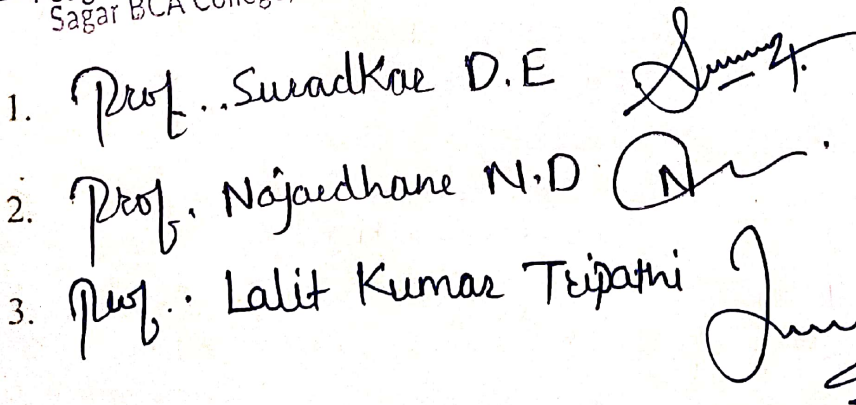 Sagar BCA
1. Prof. Suradkar D.E
2. Prof. Najardhane N.D
3. Prof. Lalit Kumar Tripathi